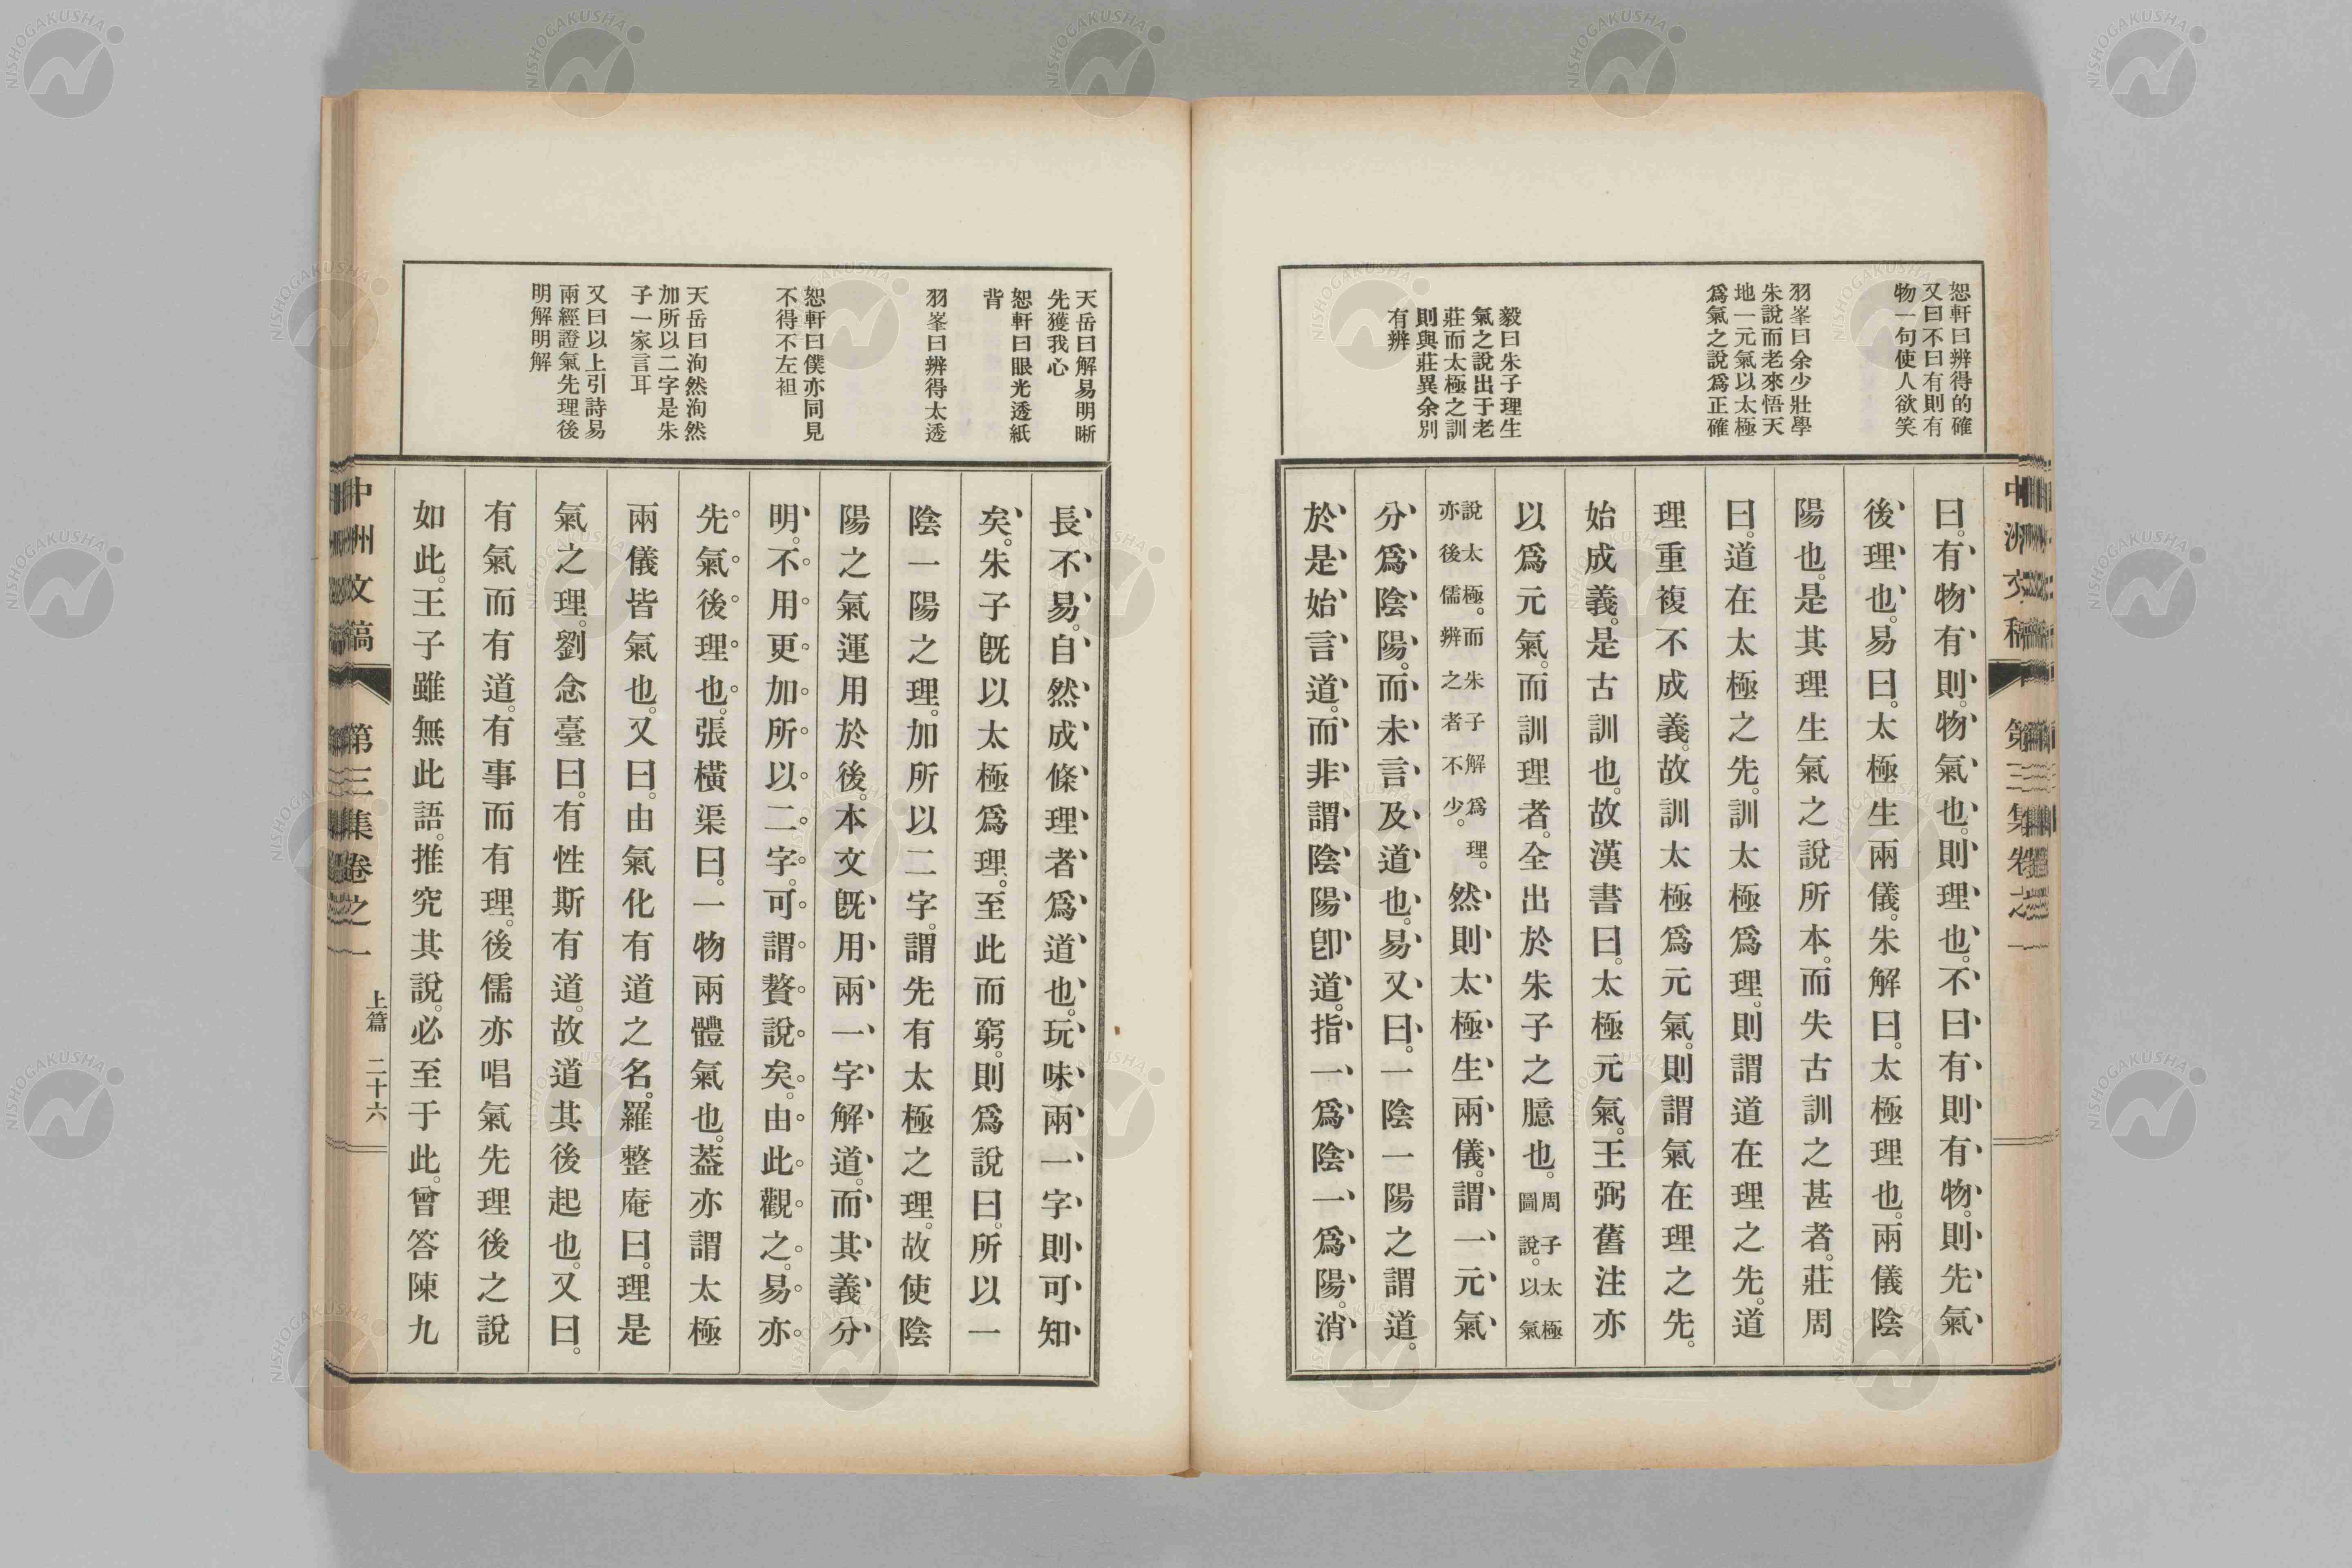 恕軒曰辨得的確
又曰不曰有則有
物一句使人欲笑
羽峯曰余少壯學
朱說而老來悟天
地一元氣以太極
爲氣之說爲正確
毅曰朱子理生
氣之說出于老
莊而太極之訓
則與莊異余別
有辨
曰。有物有則。物氣也。則理也。不曰有則有物。則先氣
後理也。易曰。太極生兩儀。朱解曰。太極理也。兩儀陰
陽也。是其理生氣之說所本。而失古訓之甚者。莊周
曰。道在太極之先。訓太極爲理。則謂道在理之先。道
理重複不成義。故訓太極爲元氣。則謂氣在理之先。
始成義。是古訓也。故漢書曰。太極元氣。王弼舊注亦
以爲元氣。而訓理者。全出於朱子之臆也。周子太極圖說。以氣
說太極。而朱子解爲理。亦後儒辨之者不少。然則太極生兩儀。謂一元氣
分爲陰陽。而未言及道也。易又曰。一陰一陽之謂道。
於是始言道。而非謂陰陽卽道。指一爲陰一爲陽。消
中洲文稿 第三集卷之一
天岳曰解易明晰
先獲我心
恕軒曰眼光透紙
背
羽峯曰辨得太透
恕軒曰僕亦同見
不得不左袒
天岳曰洵然洵然
加所以二字是朱
子一家言耳
又曰以上引詩易
兩經證氣先理後
明解明解
長不易。自然成條理者爲道也。玩味兩一字則可知
矣。朱子既以太極爲理。至此而窮。則爲說曰。所以一
陰一陽之理。加所以二字。謂先有太極之理。故使陰
陽之氣運用於後。本文既用兩一字解道。而其義分
明。不用更加所以二字。可謂贅說矣。由此觀之。易亦
先氣後理也。張橫渠曰。一物兩體氣也。葢亦謂太極
兩儀皆氣也。又曰。由氣化有道之名。羅整庵曰。理是
氣之理。劉念臺曰。有性斯有道。故道其後起也。又曰。
有氣而有道。有事而有理。後儒亦唱氣先理後之說
如此。王子雖無此語。推究其說。必至于此。曾答陳九
中洲文稿 第三集卷之一 上篇 二十六
NISHOGAKUSHA